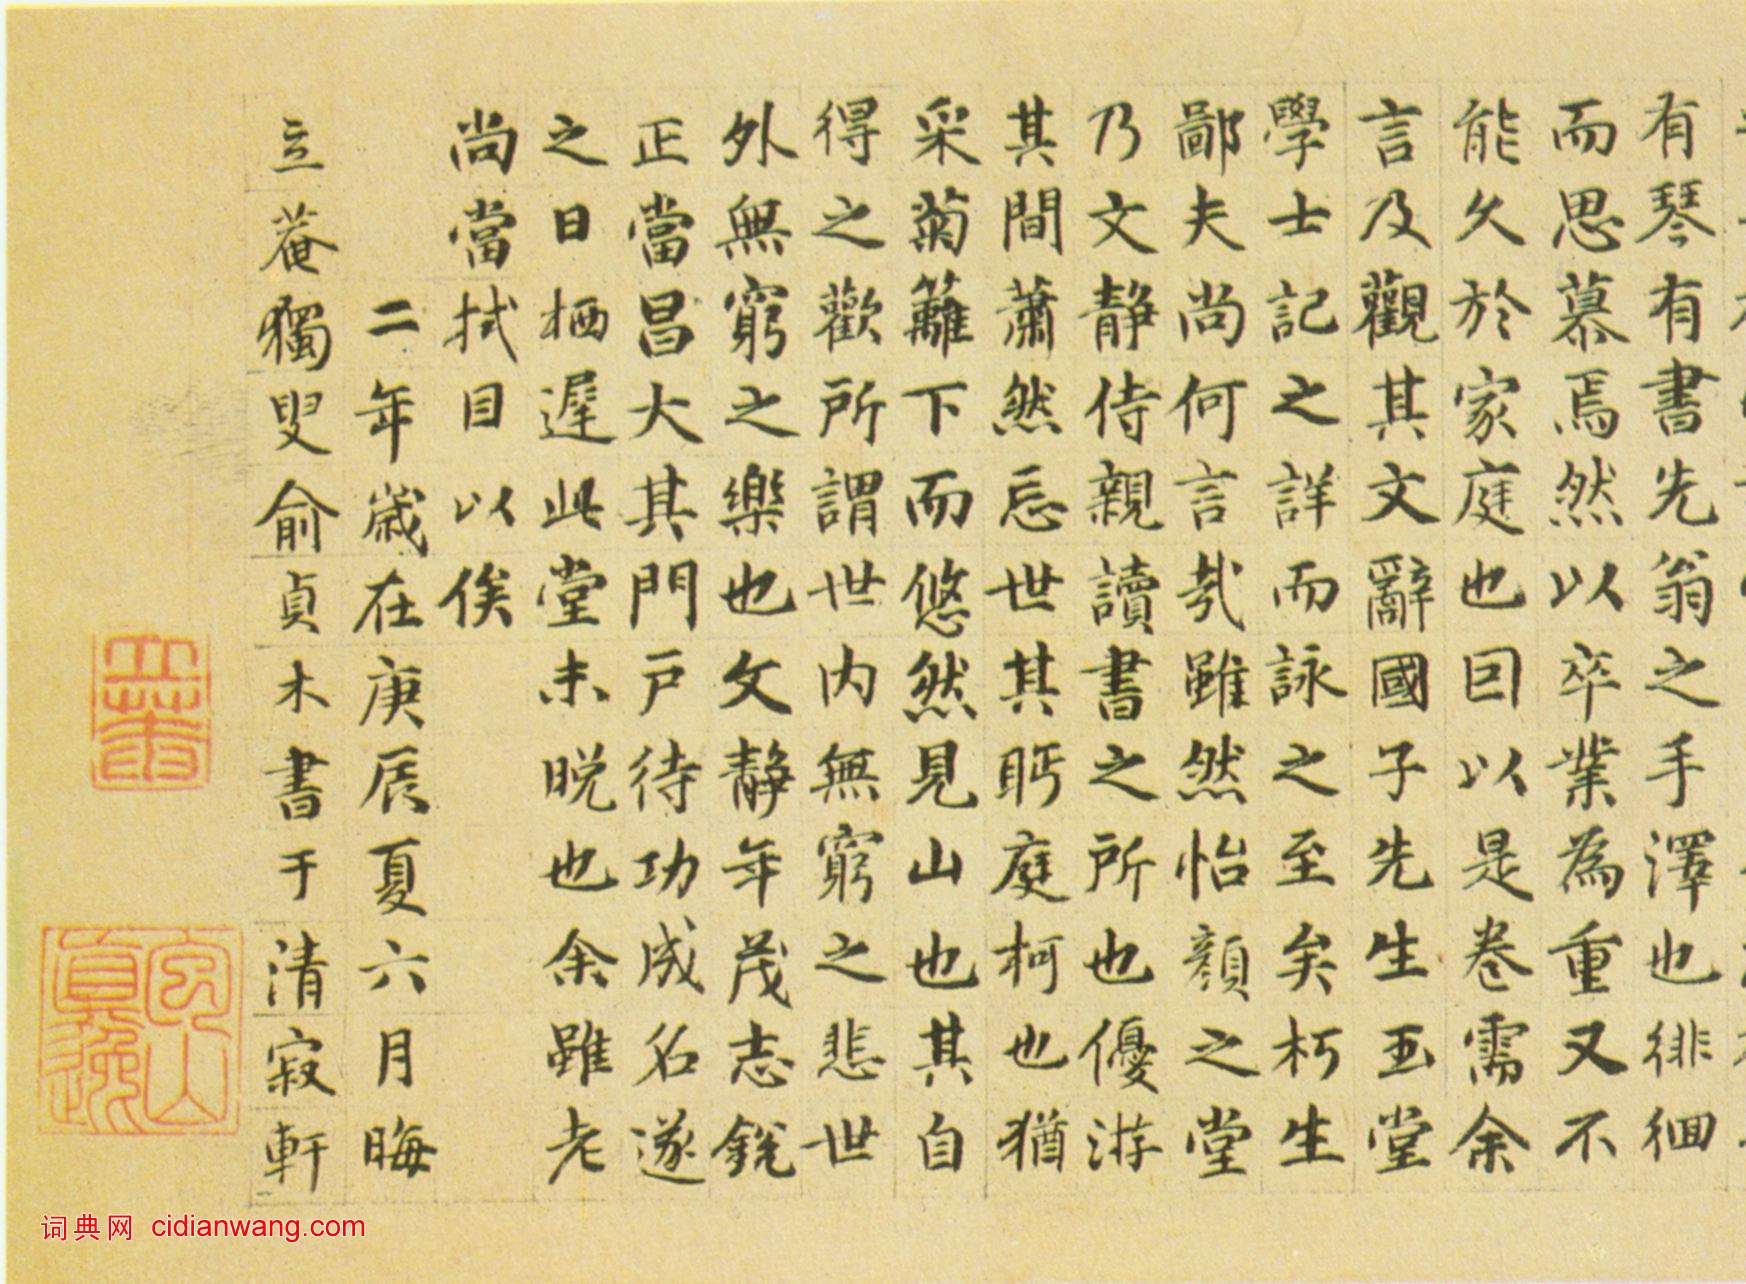 有琴有書先翁之手澤也徘徊
而思慕焉然以卒業為重又不
能久於家庭也回以是卷需余
言及觀其文辭國子先生玉堂
學士記之詳而詠之至矣朽生
鄙夫尚何言哉雖然怡顏之堂
乃文靜侍親讀書之所也優游
其間蕭然忘世其眄庭柯也猶
采菊籬下而悠然見山也其自
得之歡所謂世內無窮之悲世
外無窮之樂也文靜年茂志銳
正當昌大其門戶待功成名遂
之日栖遲此堂未晚也余雖老
尚當拭目以俟
二年歲在庚辰夏六月晦
立菴獨叟俞貞木書于清寂軒
词典网 cidianwang.com